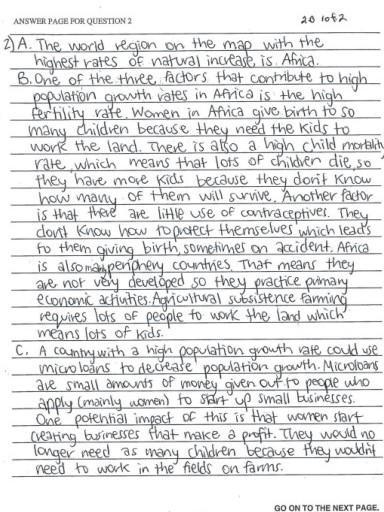 ANSWER PAGE FOR QUESTION 2 2B 1 of 2
2) A. The world region on the map with the
highest rates of natural increase, is Africa.
B. One of the three factors that contribute to high
population growth rates in Africa is the high
fertility rate. Women in Africa give birth to so
many children because they need the kids to
work the land. There is also a high child mortality
rate, which means that lots of children die, so
they have more kids because they don't know
how many of them will survive. Another factor
is that there are little use of contraceptives. They
don't know how to protect themselves which leads
to them giving birth, sometimes on accident. Africa
is also many periphery countries. That means they
are not very developed so they practice primary
economic activities. Agricultural subsistence farming
requires lots of people to work the land which
means lots of kids.
C. A country with a high population growth rate could use
microloans to decrease population growth. Microloans
are small amounts of money given out to people who
apply (mainly women) to start up small businesses.
One potential impact of this is that women start
creating businesses that make a profit. They would no
longer need as many children because they wouldn't
need to work in the fields on farms.
GO ON TO THE NEXT PAGE.